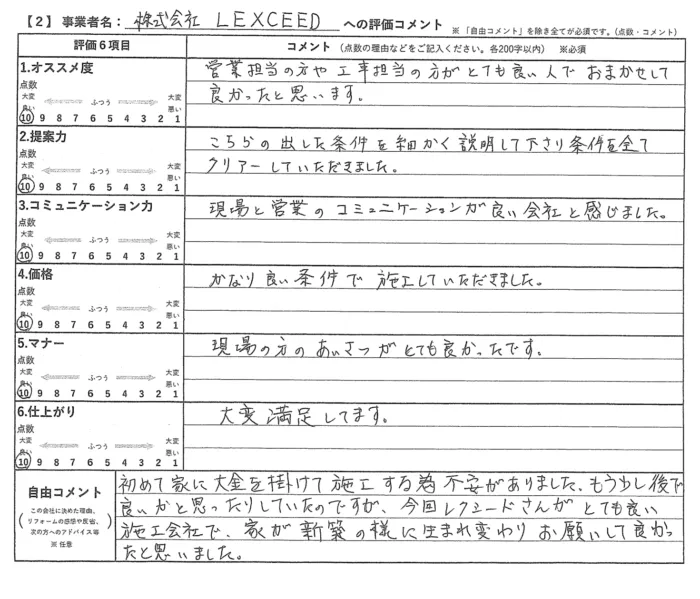 【２】事業者名： 株式会社 LEXCEED への評価コメント ※「自由コメント」を除き全てが必須です。（点数・コメント）
評価６項目 コメント（点数の理由などをご記入ください。各200字以内） ※必須
1.オススメ度
点数
大変良い ふつう 大変悪い
10 9 8 7 6 5 4 3 2 1
営業担当の方や工事担当の方がとても良い人でおまかせして
良かったと思います。
2.提案力
点数
大変良い ふつう 大変悪い
10 9 8 7 6 5 4 3 2 1
こちらの出した条件を細かく説明して下さり条件を全て
クリアーしていただきました。
3.コミュニケーション力
点数
大変良い ふつう 大変悪い
10 9 8 7 6 5 4 3 2 1
現場と営業のコミュニケーションが良い会社と感じました。
4.価格
点数
大変良い ふつう 大変悪い
10 9 8 7 6 5 4 3 2 1
かなり良い条件で施工していただきました。
5.マナー
点数
大変良い ふつう 大変悪い
10 9 8 7 6 5 4 3 2 1
現場の方のあいさつがとても良かったです。
6.仕上がり
点数
大変良い ふつう 大変悪い
10 9 8 7 6 5 4 3 2 1
大変満足してます。
自由コメント
（この会社に決めた理由、
リフォームの感想や反省、
次の方へのアドバイス等）
※ 任意
初めて家に大金を掛けて施工する為不安がありました、もう少し後で
良いかと思ったりしていたのですが、今回レクシードさんがとても良い
施工会社で、家が新築の様に生まれ変わりお願いして良かっ
たと思いました。